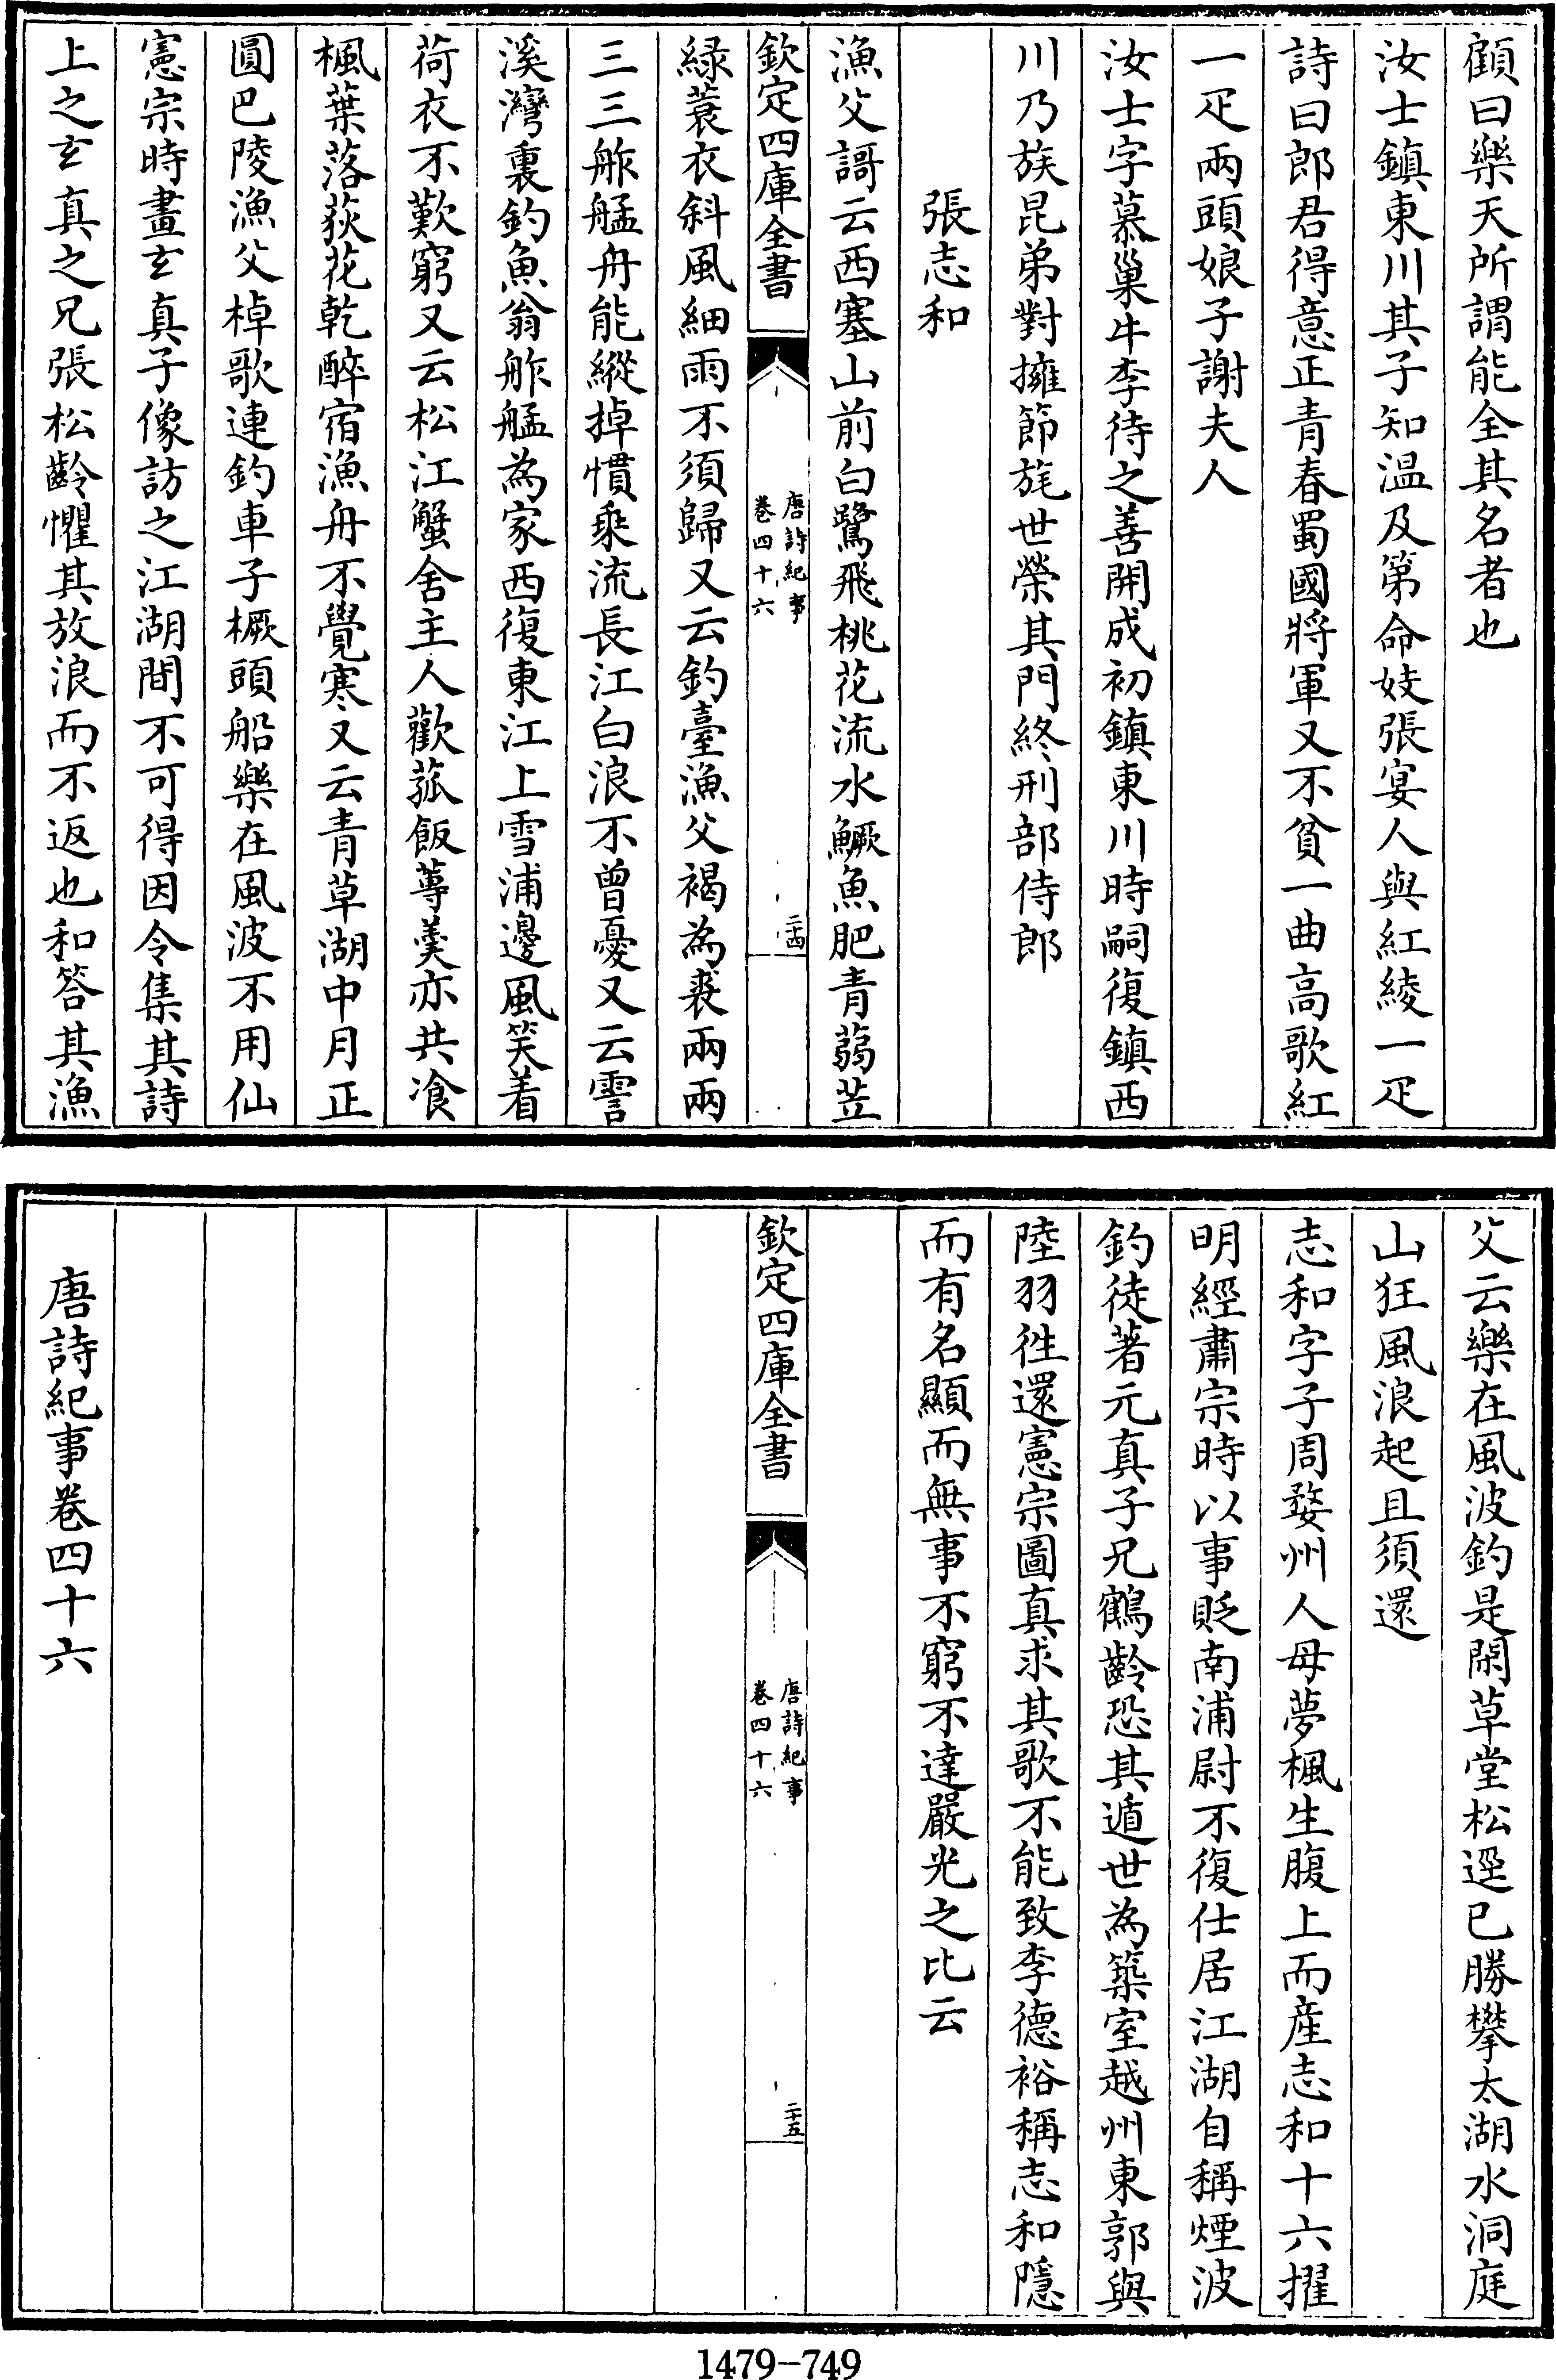 顧曰樂天所謂能全其名者也
汝士鎮東川其子知温及第命妓張宴人與紅綾一疋
詩曰郎君得意正青春蜀國將軍又不貧一曲高歌紅
一疋兩頭娘子謝夫人
汝士字慕巢牛李待之善開成初鎮東川時嗣復鎮西
川乃族昆弟對擁節旄世榮其門終刑部侍郎
張志和
漁父謌云西塞山前白鷺飛桃花流水鱖魚肥青蒻笠
欽定四庫全書
唐詩紀事
卷四十六
二十四
緑蓑衣斜風細雨不須歸又云釣臺漁父褐為裘兩兩
三三舴艋舟能縱掉慣乘流長江白浪不曾憂又云霅
溪灣裏釣魚翁舴艋為家西復東江上雪浦邊風笑着
荷衣不歎窮又云松江蟹舍主人歡菰飯蓴羹亦共飡
楓葉落荻花乾醉宿漁舟不覺寒又云青草湖中月正
圓巴陵漁父棹歌連釣車子橛頭船樂在風波不用仙
憲宗時畫玄真子像訪之江湖間不可得因令集其詩
上之玄真之兄張松齡懼其放浪而不返也和答其漁
父云樂在風波釣是閑草堂松逕已勝攀太湖水洞庭
山狂風浪起且須還
志和字子周婺州人母夢楓生腹上而産志和十六擢
明經肅宗時以事貶南浦尉不復仕居江湖自稱煙波
釣徒著元真子兄鶴齡恐其遁世為築室越州東郭與
陸羽徃還憲宗圖真求其歌不能致李德裕稱志和隱
而有名顯而無事不窮不達嚴光之比云
欽定四庫全書
唐詩紀事
卷四十六
二十五
唐詩紀事卷四十六
1479-749